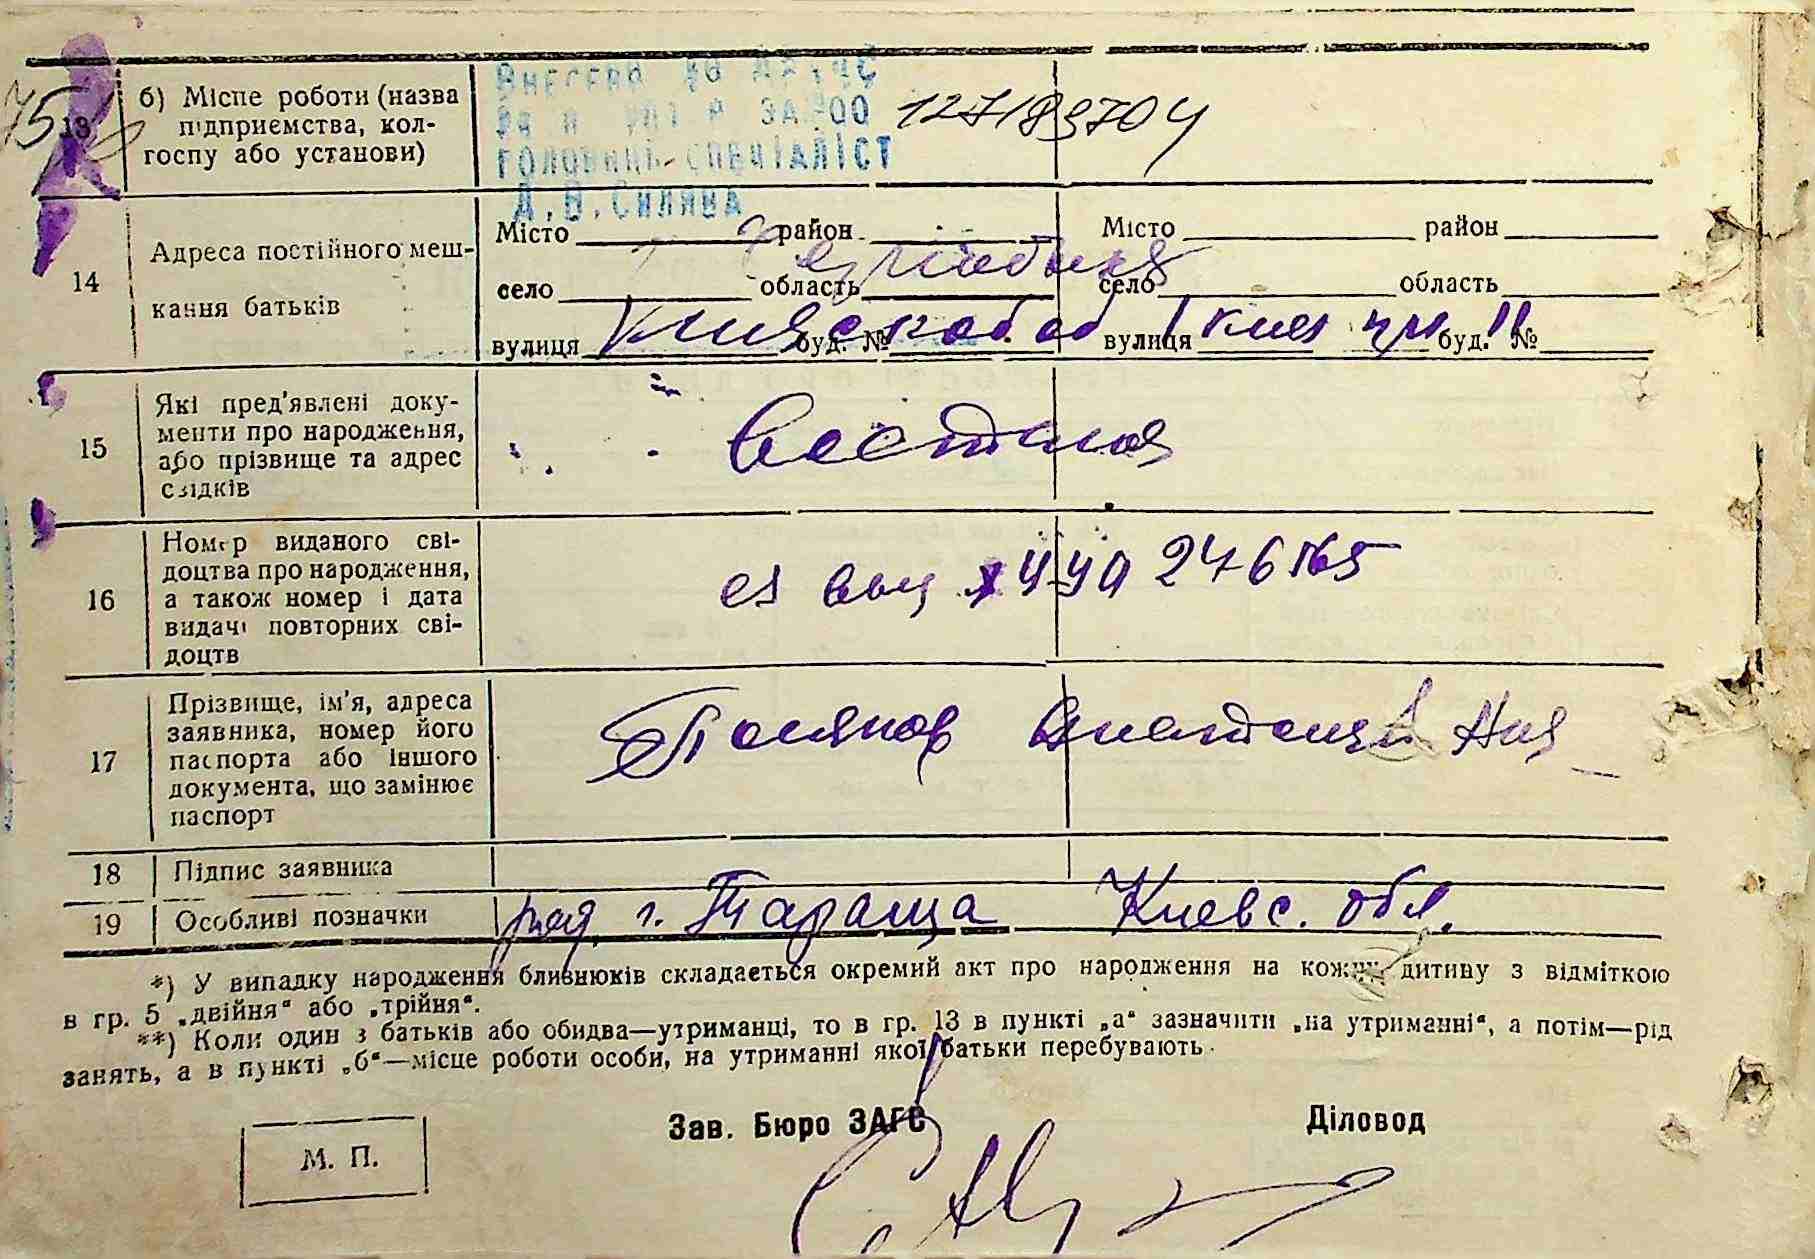 75
13 б) Місце роботи (назва
підприємства, кол-
госпу або установи)
Внесено до ДРАЦС
головний спеціаліст
Д.В.Силява
14 Адреса постійного меш-
кання батьків
Місто район Місто район
село область село область
вулиця буд. № вулиця буд. № 11
15 Які пред'явлені доку-
менти про народження,
або прізвище та адрес
свідків
16 Номер виданого сві-
доцтва про народження,
а також номер і дата
видачі повторних сві-
доцтв
246165
17 Прізвище, ім'я, адреса
заявника, номер його
паспорта або іншого
документа, що замінює
паспорт
18 Підпис заявника
19 Особливі позначки род г. Тараща Киевс. обл.
*) У випадку народження близнюків складається окремий акт про народження на кожну дитину з відміткою
в гр. 5 „двійня“ або „трійня“.
**) Коли один з батьків або обидва—утриманці, то в гр. 13 в пункті „а“ зазначити „на утриманні“, а потім—рід
занять, а в пункті „б“—місце роботи особи, на утриманні якої батьки перебувають.
Зав. Бюро ЗАГС Діловод
М. П.